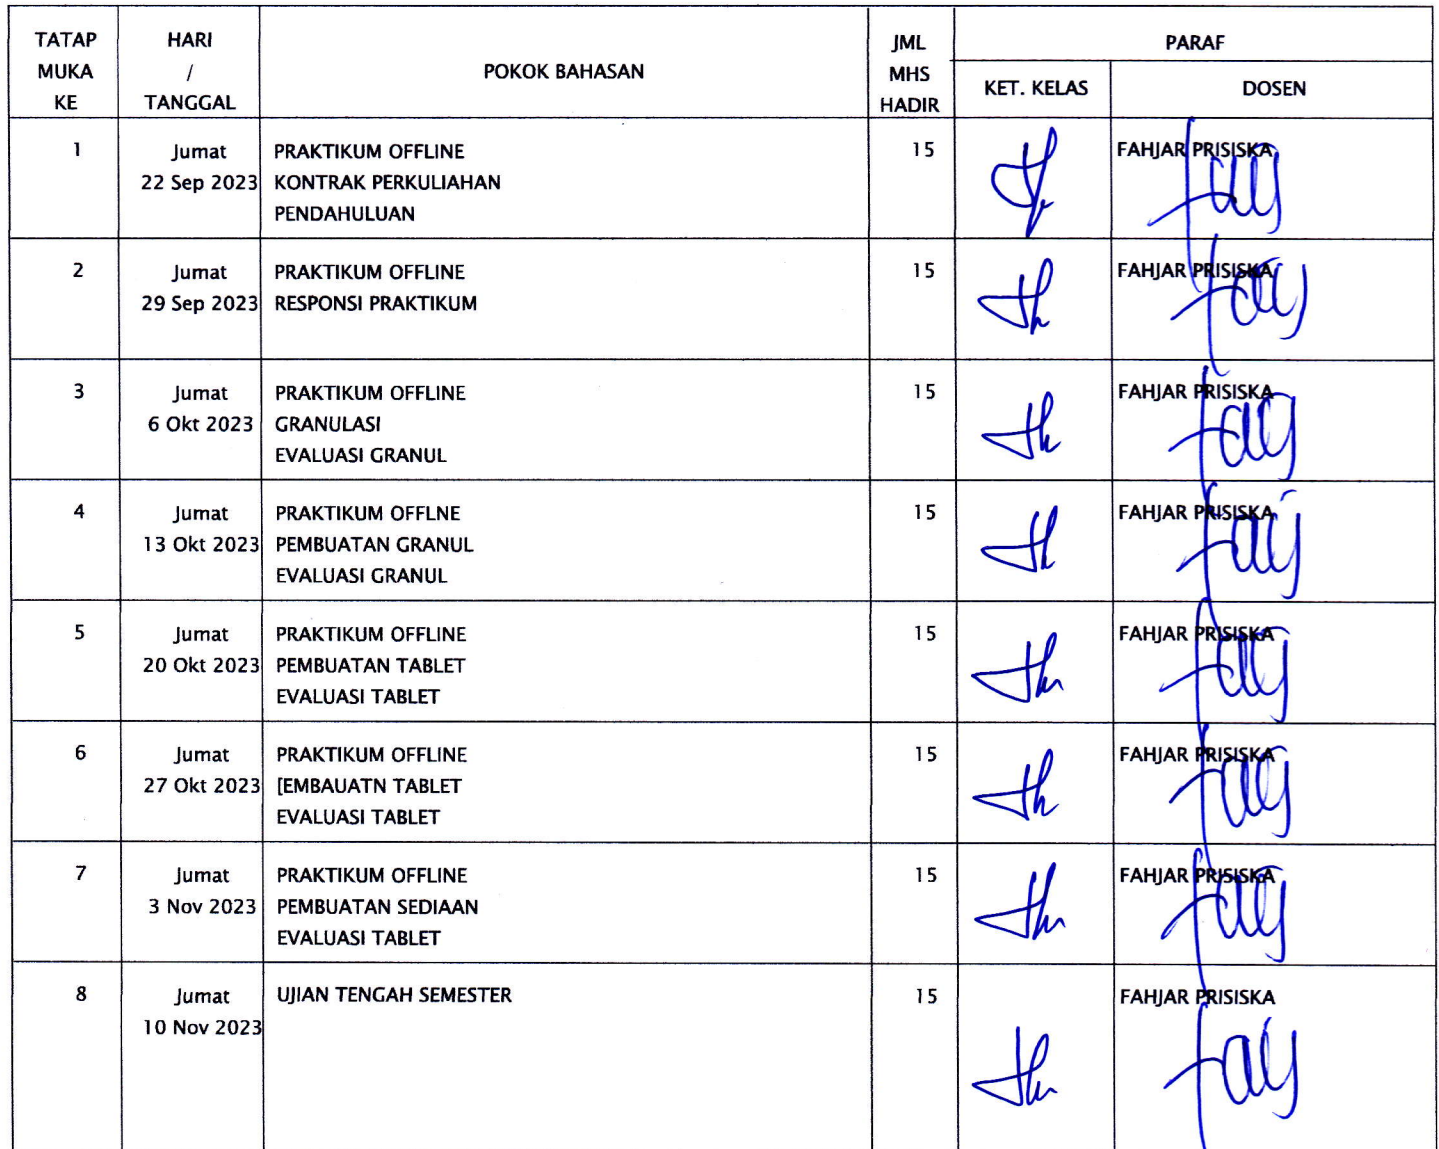 TATAP MUKA KE
HARI / TANGGAL
POKOK BAHASAN
JML MHS HADIR
PARAF
KET. KELAS
DOSEN
1
Jumat
22 Sep 2023
PRAKTIKUM OFFLINE
KONTRAK PERKULIAHAN
PENDAHULUAN
15
FAHJAR PRISISKA
2
Jumat
29 Sep 2023
PRAKTIKUM OFFLINE
RESPONSI PRAKTIKUM
15
FAHJAR PRISISKA
3
Jumat
6 Okt 2023
PRAKTIKUM OFFLINE
GRANULASI
EVALUASI GRANUL
15
FAHJAR PRISISKA
4
Jumat
13 Okt 2023
PRAKTIKUM OFFLNE
PEMBUATAN GRANUL
EVALUASI GRANUL
15
FAHJAR PRISISKA
5
Jumat
20 Okt 2023
PRAKTIKUM OFFLINE
PEMBUATAN TABLET
EVALUASI TABLET
15
FAHJAR PRISISKA
6
Jumat
27 Okt 2023
PRAKTIKUM OFFLINE
[EMBAUATN TABLET
EVALUASI TABLET
15
FAHJAR PRISISKA
7
Jumat
3 Nov 2023
PRAKTIKUM OFFLINE
PEMBUATAN SEDIAAN
EVALUASI TABLET
15
FAHJAR PRISISKA
8
Jumat
10 Nov 2023
UJIAN TENGAH SEMESTER
15
FAHJAR PRISISKA